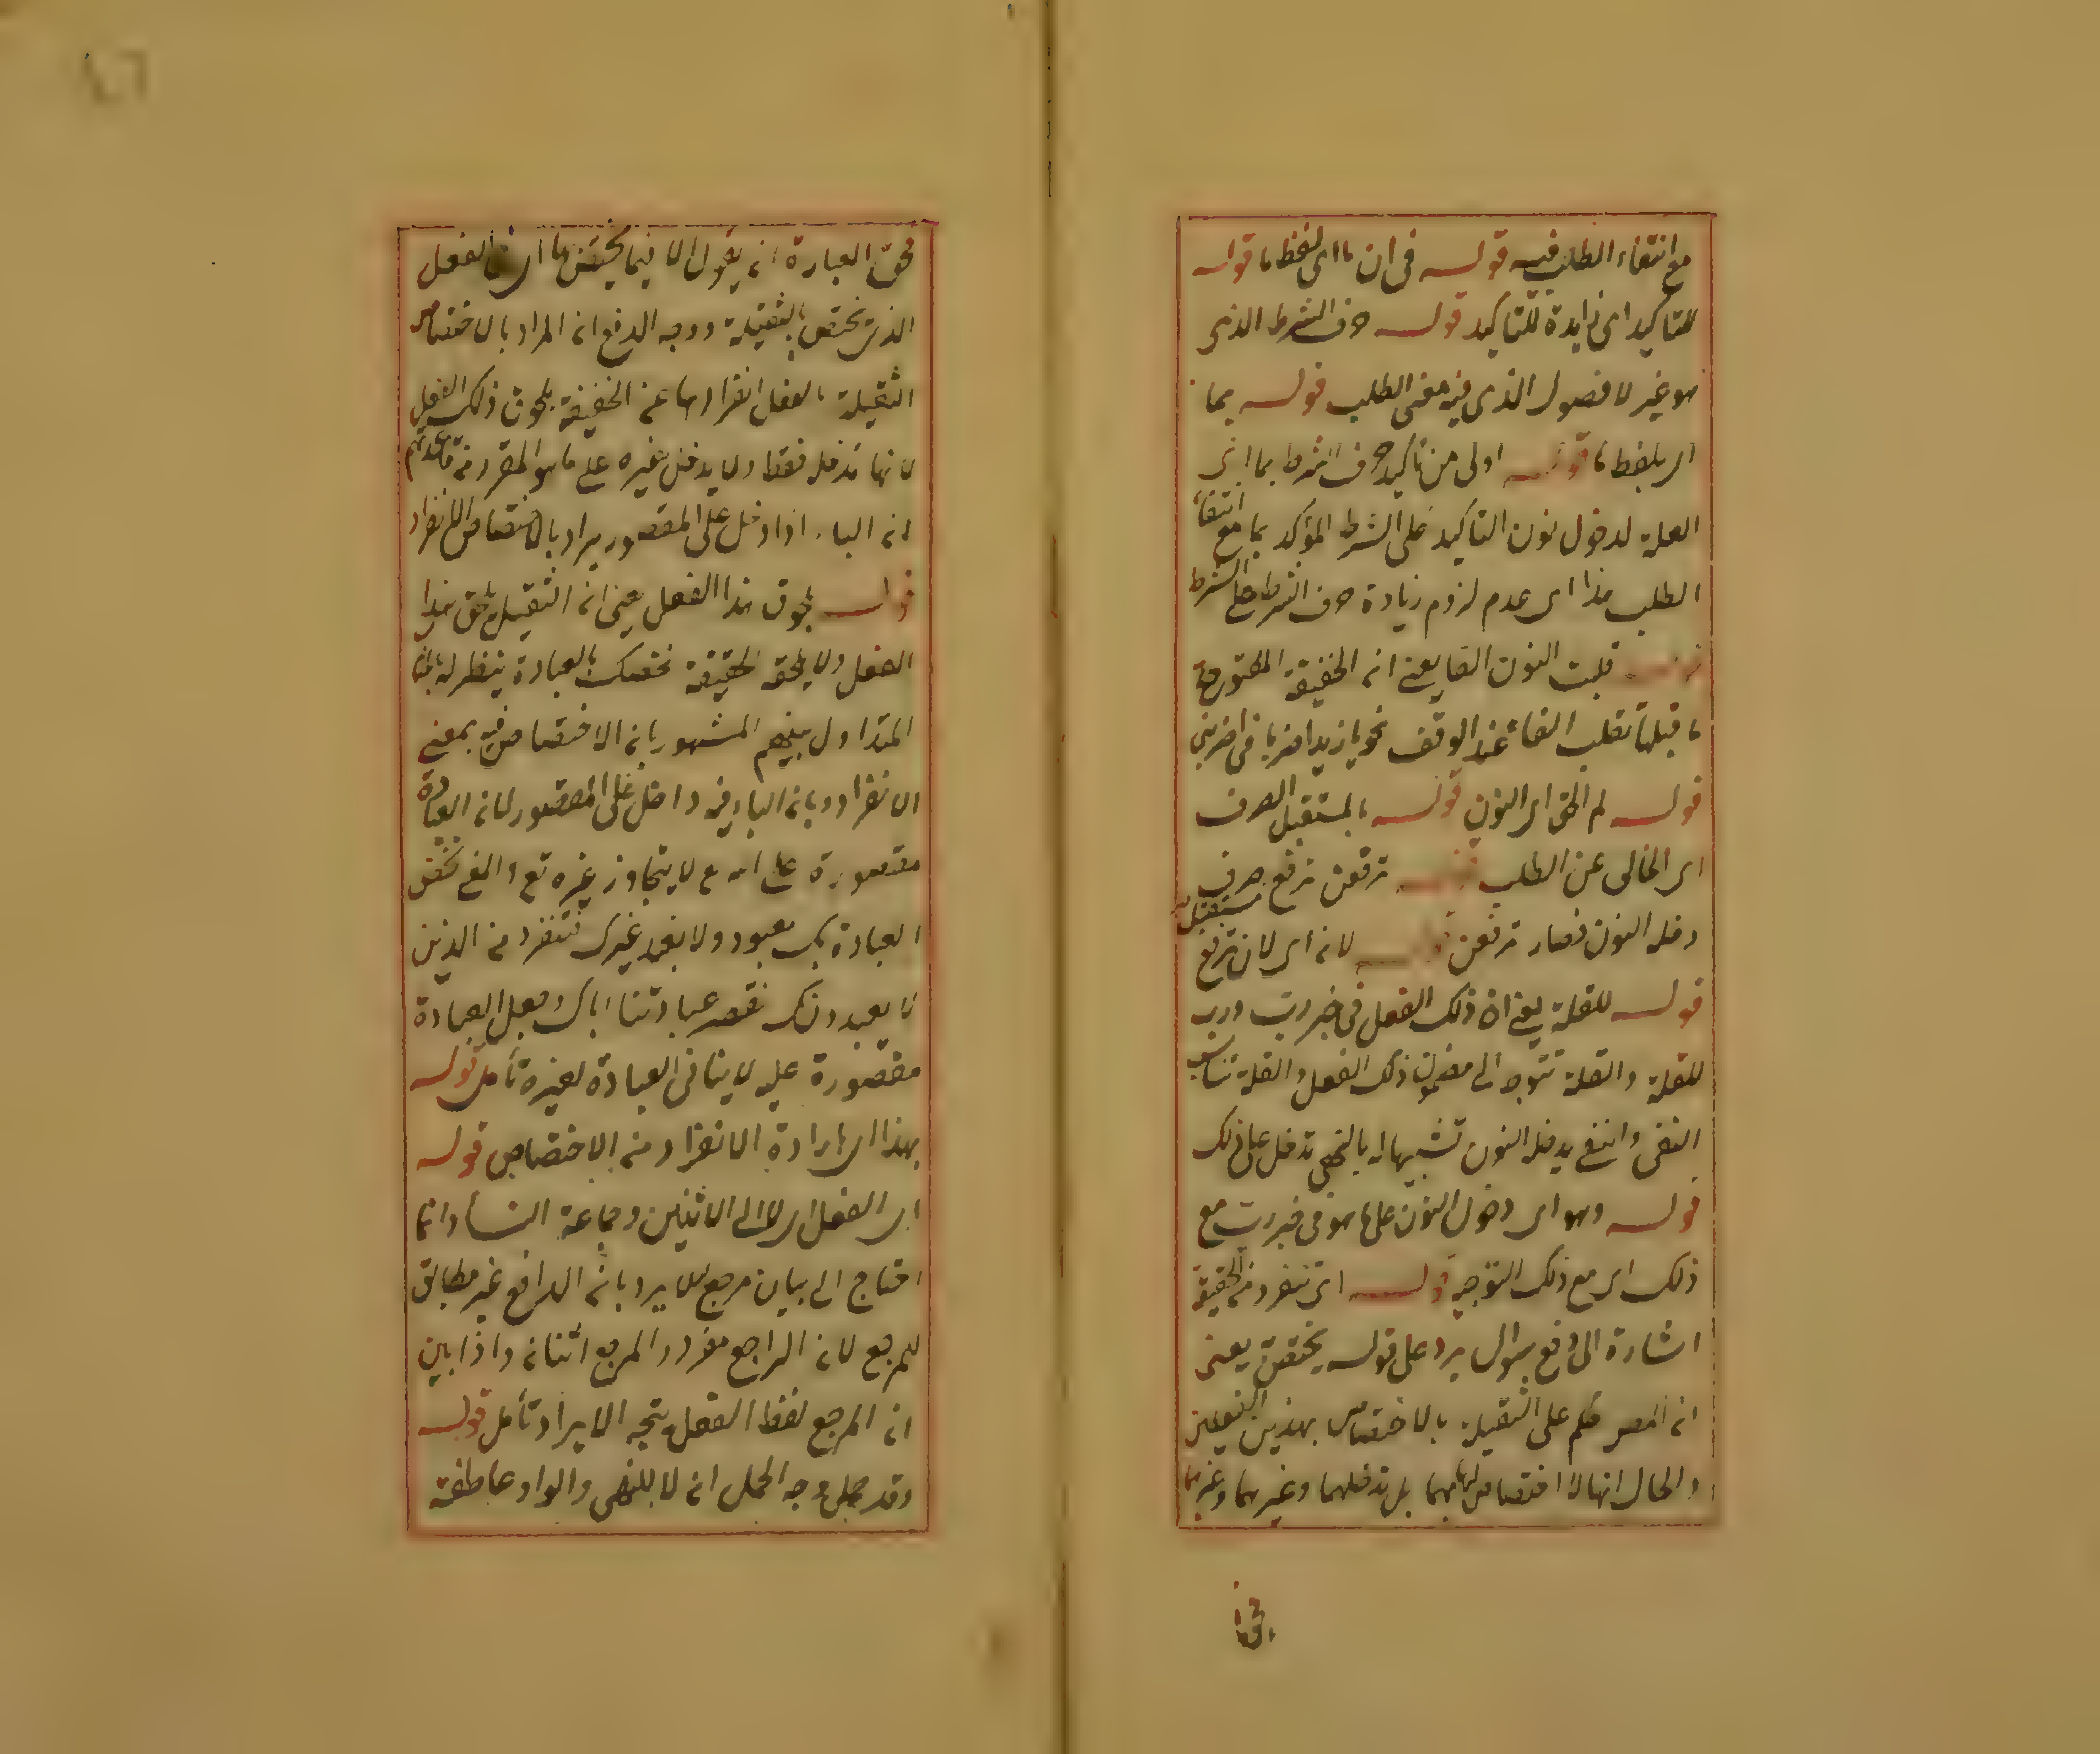 مع انتفاء الطلب فيه قوله في ان ما اى لفظ ما قوله
للتاكيد اى زايدة للتاكيد قوله حرف الشرط الذى
هو غير لا فصول الذى فيه معنى الطلب قوله بما
اى بلفظ ما قوله اولى من تاكيد حرف الشرط بما اى
العلة لدخول نون التاكيد على الشرط المؤكد بما مع انتفاء
الطلب هذا اى عدم لزوم زيادة حرف الشرط على الشرط
قوله قلبت النون الفا يعنى انه الخفيفة المفتوحة
ما قبلها تقلب الفا عند الوقف نحو يا زيد اضربا فى اضربن
قوله لم الحق اى النون قوله بالمستقبل الصرف
اى الخالى عن الطلب قوله ترفعن ترفع صرف مستقبل
دخله النون فصار ترفعن قوله لانه اى لان ترفع
قوله للقلة يعنى ان ذلك الفعل فى خبر رب ورب
للقلة والقلة تتوجه الى مضمون ذلك الفعل والقلة تناسب
النفى والنفى يدخله النون تشبيها له بالنهى تدخل على ذلك
قوله وهو اى دخول النون على ما هو فى خبر رب مع
ذلك اى مع ذلك التوجيه قوله اى تنفرد من الخفيفة
اشارة الى دفع سؤال يرد على قوله يختص يعنى
انه المص حكم على الثقيلة بالاختصاص بهذين الفعلين
والحال انها لا اختصاص لها بهما بل تدخلهما وغيرهما وغيرهما
فحق
فحق العبارة انه يقول الا فيما يختص بها اى الفعل
الذى يختص بالثقيلة ووجه الدفع انه المراد بالاختصاص
الثقيلة بالفعل انفرادها عن الخفيفة بلحوق ذلك الفعل
لانها تدخله فقط ولا يدخل غيره على ما هو المقرر من قاعدتهم
انه الباء اذا دخل على المقصور يراد بالاختصاص الانفراد
قوله بلحوق هذا الفعل يعنى انه الثقيلة تلحق هذا
الفعل ولا يلحقه الخفيفة نخصك بالعبادة ينظر له بالمثال
المتداول بينهم المشهور بانه الاختصاص فيه بمعنى
الانفراد وبانه الباء فيه داخل على المقصور لانه العبادة
مقصورة على الله تع لا يتجاوز غيره تع والمعنى نخص
العبادة بك معبود ولا نعبد غيرك فتنفرد من الذين
لا يعبدونك فقصر عبادتنا اياك وجعل العبادة
مقصورة عليه لا ينافى العبادة لغيره تأمل قوله
بهذا اى بارادة الانفراد من الاختصاص قوله
اى الفعل اى لا الى الاثنين وجماعة النساء وانما
احتاج الى بيان مرجع لئلا يرد بانه الراجع غير مطابق
للمرجع لانه الراجع مفرد والمرجع اثنان واذا بين
انه المرجع لفظ الفعل يتجه الايراد تأمل قوله
وقد حمل وجه الحمل انه لا للنهى والواو عاطفة